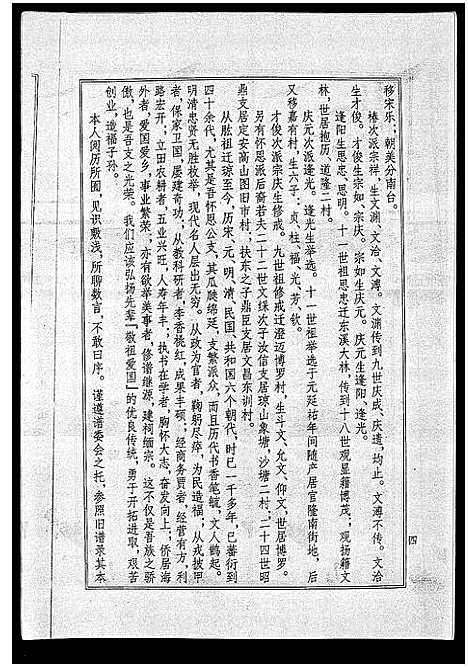 移宋乐；朝美分南台。
椿次派宗祥，生文渊、文治、文溥。文渊传到九世庆成、庆遗，均止。文溥不传。文治
生才俊。才俊生宗如、宗庆。宗如生庆元。庆元生逢阳、逢光。
逢阳生思忠、思明。十一世祖思忠迁东溪大林，传到十八世观显籍博茂；观扬籍文
林，世居抱历、道隆二村。
庆元次派逢光。逢光生举选。十一世祖举选于元延祐年间随产居官隆南街地，后
又移嘉有村，生六子：贞、柱、福、光、芳、钦。
才俊次派宗庆生修戒。九世祖修戒迁澄迈博罗村，生斗文、允文、仰文，世居博罗。
另有怀思派后裔若夫二十二世文绿次子汝信支居琼山象塘，沙塘二村，二十四世昭
鼎支居定安高山图旧市村；扶东之子鼎臣支居文昌东训村。
从肱祖迁琼至今，历宋、元、明、清、民国、共和国六个朝代，时已一千多年，已蕃衍到
四十余代，尤其是吾怀思公支，其瓜瓞绵延，支繁派众，而且历代书香笔毓，文人鹤起。
明清忠贤不胜枚举，现代名人层出无穷。从政为官者，鞠躬尽瘁，为民造福；从戎披甲
者，保家卫国，屡建奇功，从教科研者，李香桃红，成果丰硕；经商务贾者，经营有方，利
路宏开；立田农耕者，五业兴旺，人寿年丰，执书在学者，胸怀大志，奋发向上；侨居海
外者，爱国爱乡，事业繁荣；亦有欲举美事者，修谱继源，建祠缅宗。这不仅是吾族之骄
傲，也是吾支之光荣。我们应该弘扬先辈「敬祖爱国」的优良传统，勇于开拓进取，艰苦
创业，造福子孙。
本人阅历所囿，见识敷浅，所聊数言，不敢曰序。谨遵谱委会之托，参照旧谱录其本
四